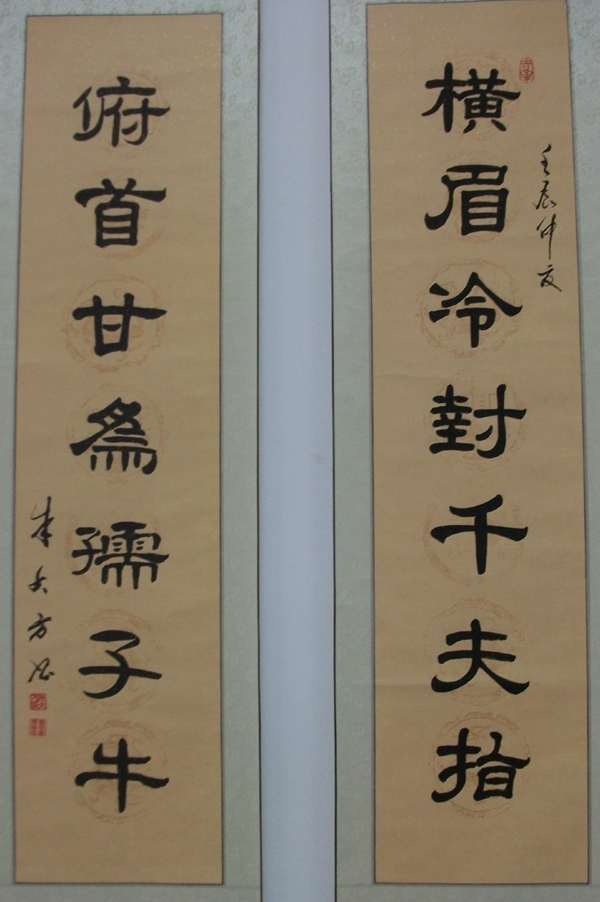 横眉冷封千夫指
壬辰仲夏
俯首甘為孺子牛